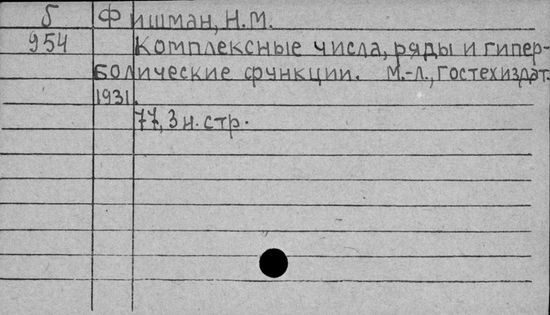 Б Фишман, Н.М.
954 Комплексные числа, ряды и гипер-
болические функции. М.-Л., Гостехиздат.
1931.
77, 3 н. стр.